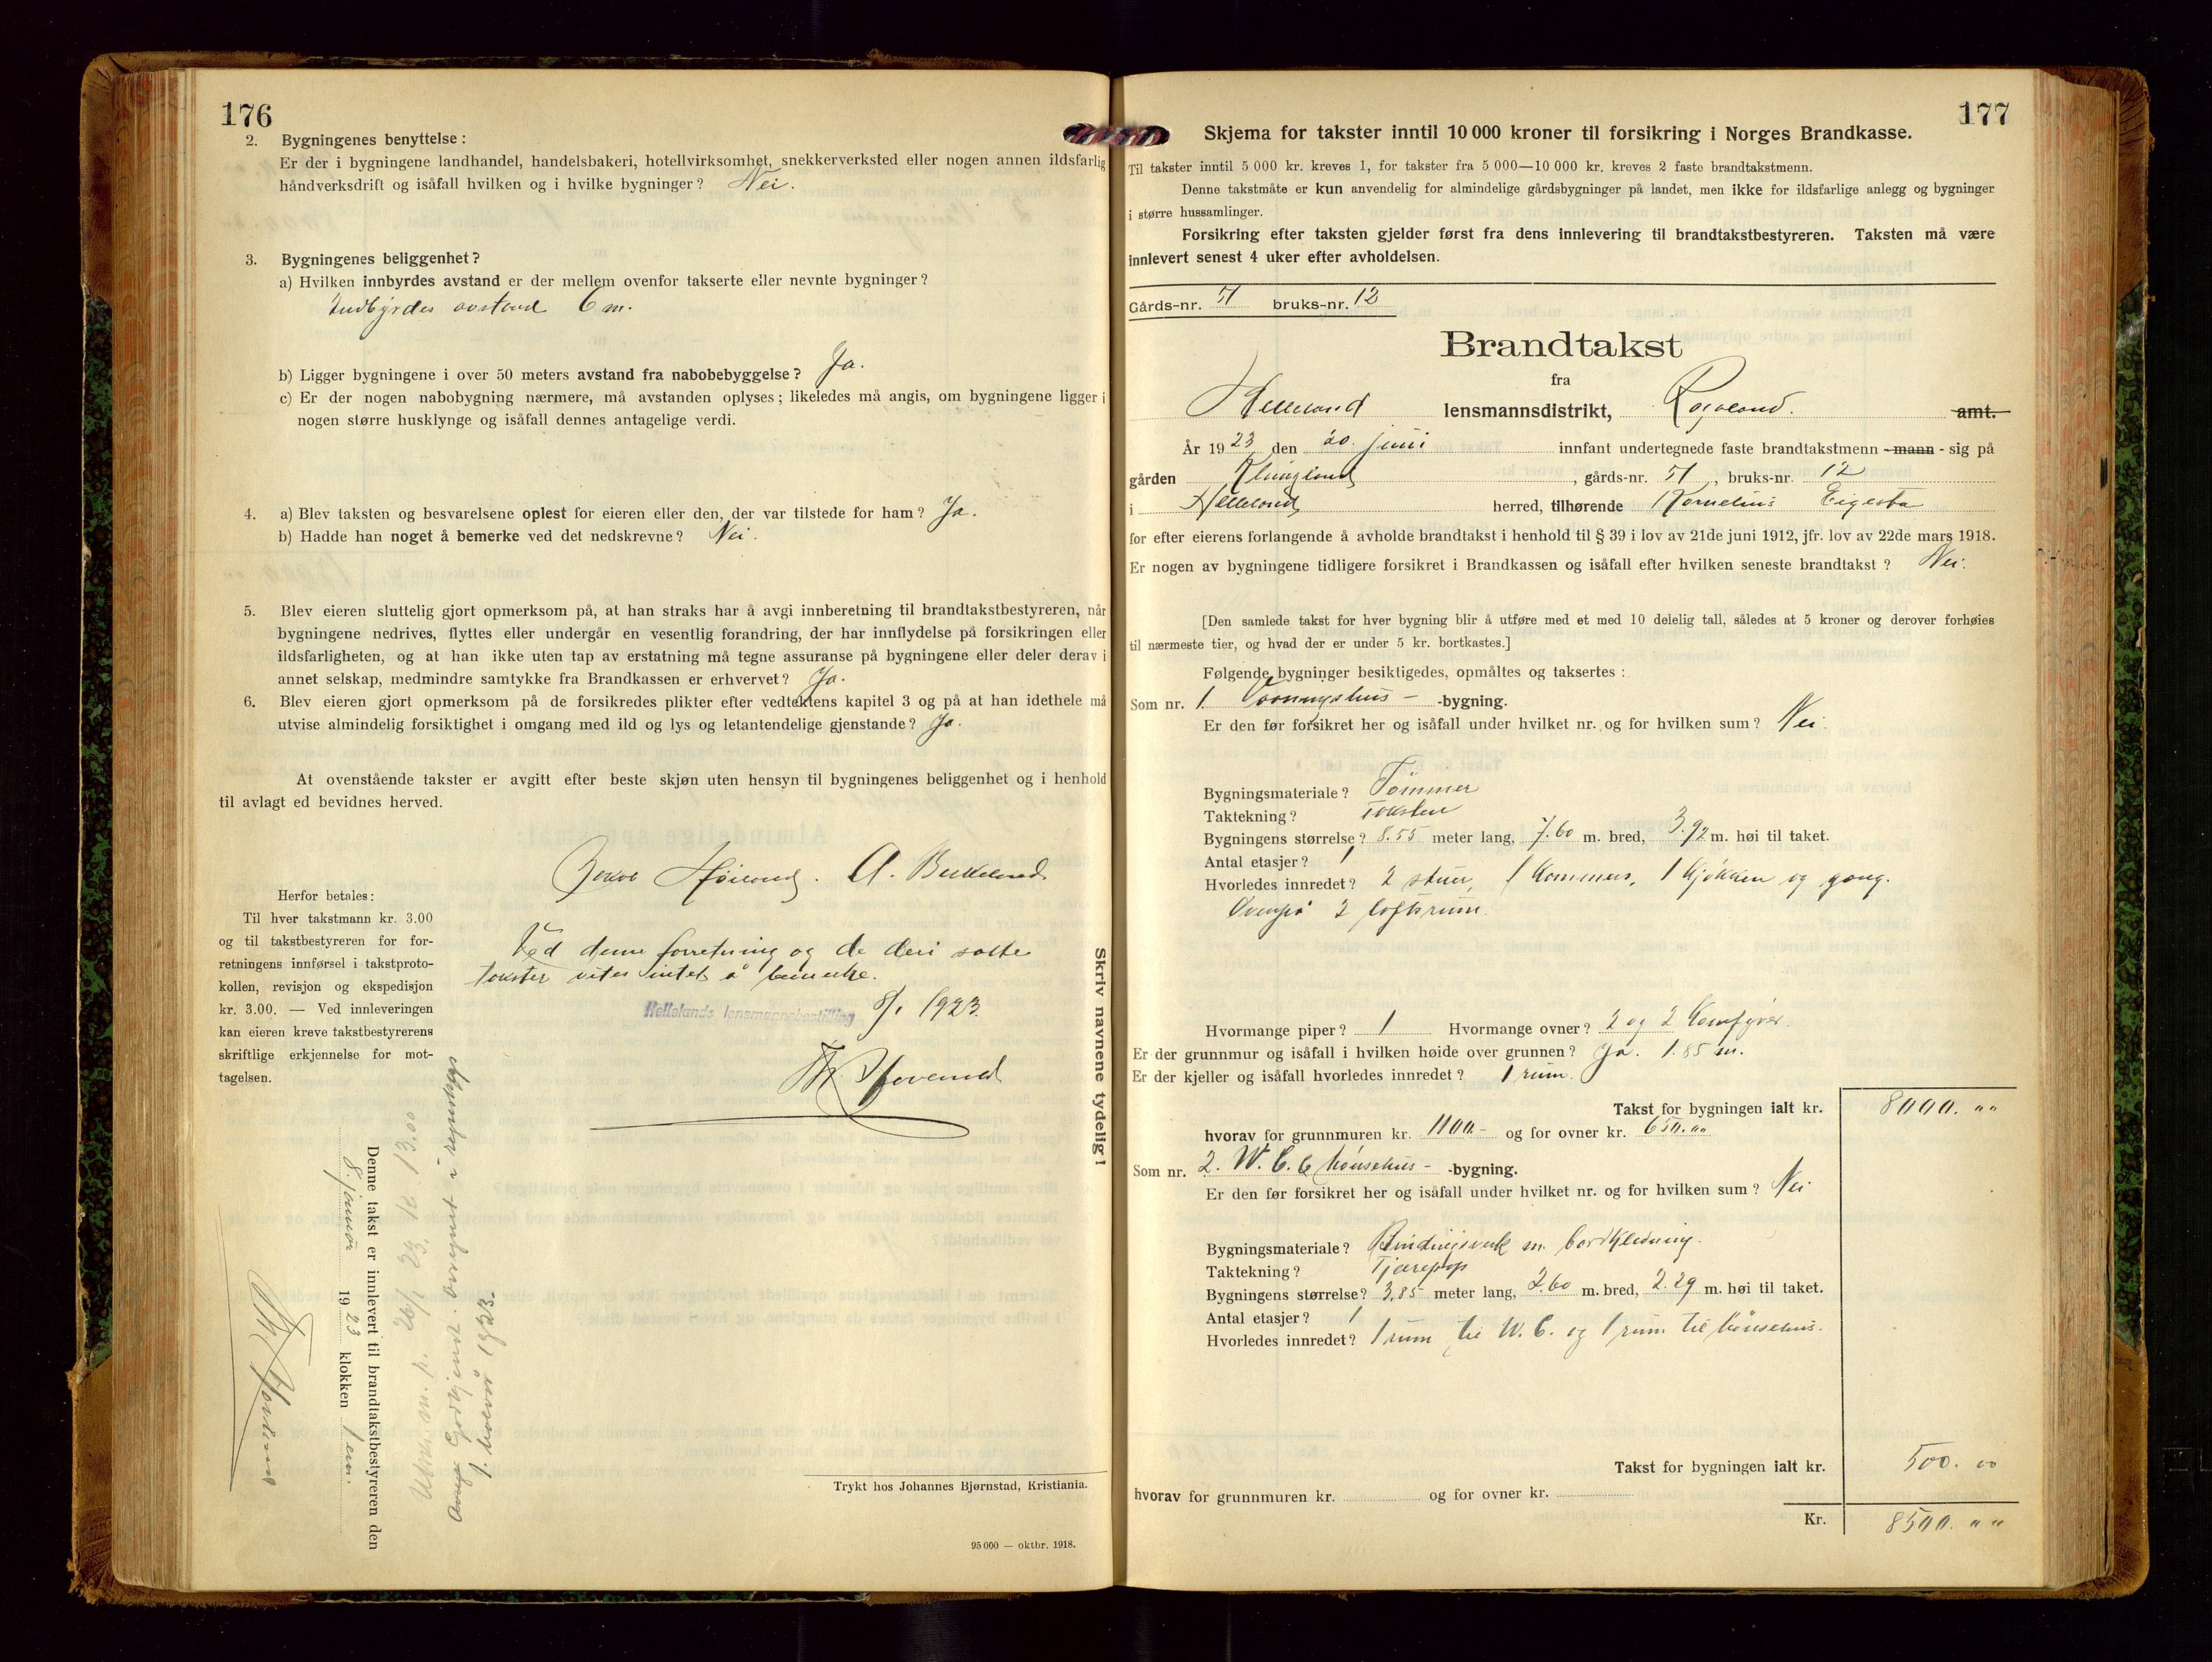 176
2. Bygningenes benyttelse:
Er der i bygningene landhandel, handelsbakeri, hotellvirksomhet, snekkerverksted eller nogen annen ildsfarlig
håndverksdrift og isåfall hvilken og i hvilke bygninger? Nei.
3. Bygningenes beliggenhet?
a) Hvilken innbyrdes avstand er der mellem ovenfor takserte eller nevnte bygninger?
Indbyrdes avstand 6 m.
b) Ligger bygningene i over 50 meters avstand fra nabobebyggelse? Ja.
c) Er der nogen nabobygning nærmere, må avstanden oplyses; likeledes må angis, om bygningene ligger i
nogen større husklynge og isåfall dennes antagelige verdi.
4. a) Blev taksten og besvarelsene oplest for eieren eller den, der var tilstede for ham? Ja.
b) Hadde han noget å bemerke ved det nedskrevne? Nei.
5. Blev eieren sluttelig gjort opmerksom på, at han straks har å avgi innberetning til brandtakstbestyreren, når
bygningene nedrives, flyttes eller undergår en vesentlig forandring, der har innflydelse på forsikringen eller
ildsfarligheten, og at han ikke uten tap av erstatning må tegne assuranse på bygningene eller deler derav i
annet selskap, medmindre samtykke fra Brandkassen er erhvervet? Ja.
6. Blev eieren gjort opmerksom på de forsikredes plikter efter vedtektens kapitel 3 og på at han idethele må
utvise almindelig forsiktighet i omgang med ild og lys og letantendelige gjenstande? Ja.
At ovenstående takster er avgitt efter beste skjøn uten hensyn til bygningenes beliggenhet og i henhold
til avlagt ed bevidnes herved.
A. Birkeland
Herfor betales:
Til hver takstmann kr. 3.00
og til takstbestyreren for for-
retningens innførsel i takstproto-
kollen, revisjon og ekspedisjon
kr. 3.00. — Ved innleveringen
kan eieren kreve takstbestyrerens
skriftlige erkjennelse for mot-
tagelsen.
Ved denne forretning og de deri satte
takster vites intet å bemerke.
Hellelands lensmannsbestilling 8/1 1923.
Skriv navnene tydelig!
Denne takst er innlevert til brandtakstbestyreren den
8. januar 1923 klokken 1 em.
26/1 23. kr. 13.00
1923.
Trykt hos Johannes Bjørnstad, Kristiania.
95 000 — oktbr. 1918.
177
Skjema for takster inntil 10 000 kroner til forsikring i Norges Brandkasse.
Til takster inntil 5 000 kr. kreves 1, for takster fra 5 000—10 000 kr. kreves 2 faste brandtakstmenn.
Denne takstmåte er kun anvendelig for almindelige gårdsbygninger på landet, men ikke for ildsfarlige anlegg og bygninger
i større hussamlinger.
Forsikring efter taksten gjelder først fra dens innlevering til brandtakstbestyreren. Taksten må være
innlevert senest 4 uker efter avholdelsen.
Gårds-nr. 51 bruks-nr. 12
Brandtakst
fra
Helleland lensmannsdistrikt, Rogaland. amt.
År 1923 den 20. juni innfant undertegnede faste brandtakstmenn - mann - sig på
gården Klungland, gårds-nr. 51, bruks-nr. 12
i Helleland herred, tilhørende Kornelius Eigesta
for efter eierens forlangende å avholde brandtakst i henhold til § 39 i lov av 21de juni 1912, jfr. lov av 22de mars 1918.
Er nogen av bygningene tidligere forsikret i Brandkassen og isåfall efter hvilken seneste brandtakst? Nei.
[Den samlede takst for hver bygning blir å utføre med et med 10 delelig tall, således at 5 kroner og derover forhøies
til nærmeste tier, og hvad der er under 5 kr. bortkastes.]
Følgende bygninger besiktigedes, opmåltes og taksertes:
Som nr. 1 Vaaningshus- -bygning.
Er den før forsikret her og isåfall under hvilket nr. og for hvilken sum? Nei.
Bygningsmateriale? Tømmer
Taktekning? Taksten
Bygningens størrelse? 8.55 meter lang, 7.60 m. bred, 3.92 m. høi til taket.
Antal etasjer? 1
Hvorledes innredet? 2 stuer, 1 kammers, 1 kjøkken og gang.
Ovenpå 2 loftsrum.
Hvormange piper? 1 Hvormange ovner? 2 og 2 komfyrer.
Er der grunnmur og isåfall i hvilken høide over grunnen? Ja. 1.85 m.
Er der kjeller og isåfall hvorledes innredet? 1 rum.
Takst for bygningen ialt kr. 8000. "
hvorav for grunnmuren kr. 1100.- og for ovner kr. 650."
Som nr. 2. W. C. & hönsehus- -bygning.
Er den før forsikret her og isåfall under hvilket nr. og for hvilken sum? Nei
Bygningsmateriale? Bindingsverk m. bordklædning.
Taktekning? Tjærepap
Bygningens størrelse? 3.85 meter lang, 2.60 m. bred, 2.29 m. høi til taket.
Antal etasjer? 1
Hvorledes innredet? 1 rum til W. C. og 1 rum til hönsehus.
Takst for bygningen ialt kr. 500. 00
hvorav for grunnmuren kr. og for ovner kr.
Kr. 8500. "